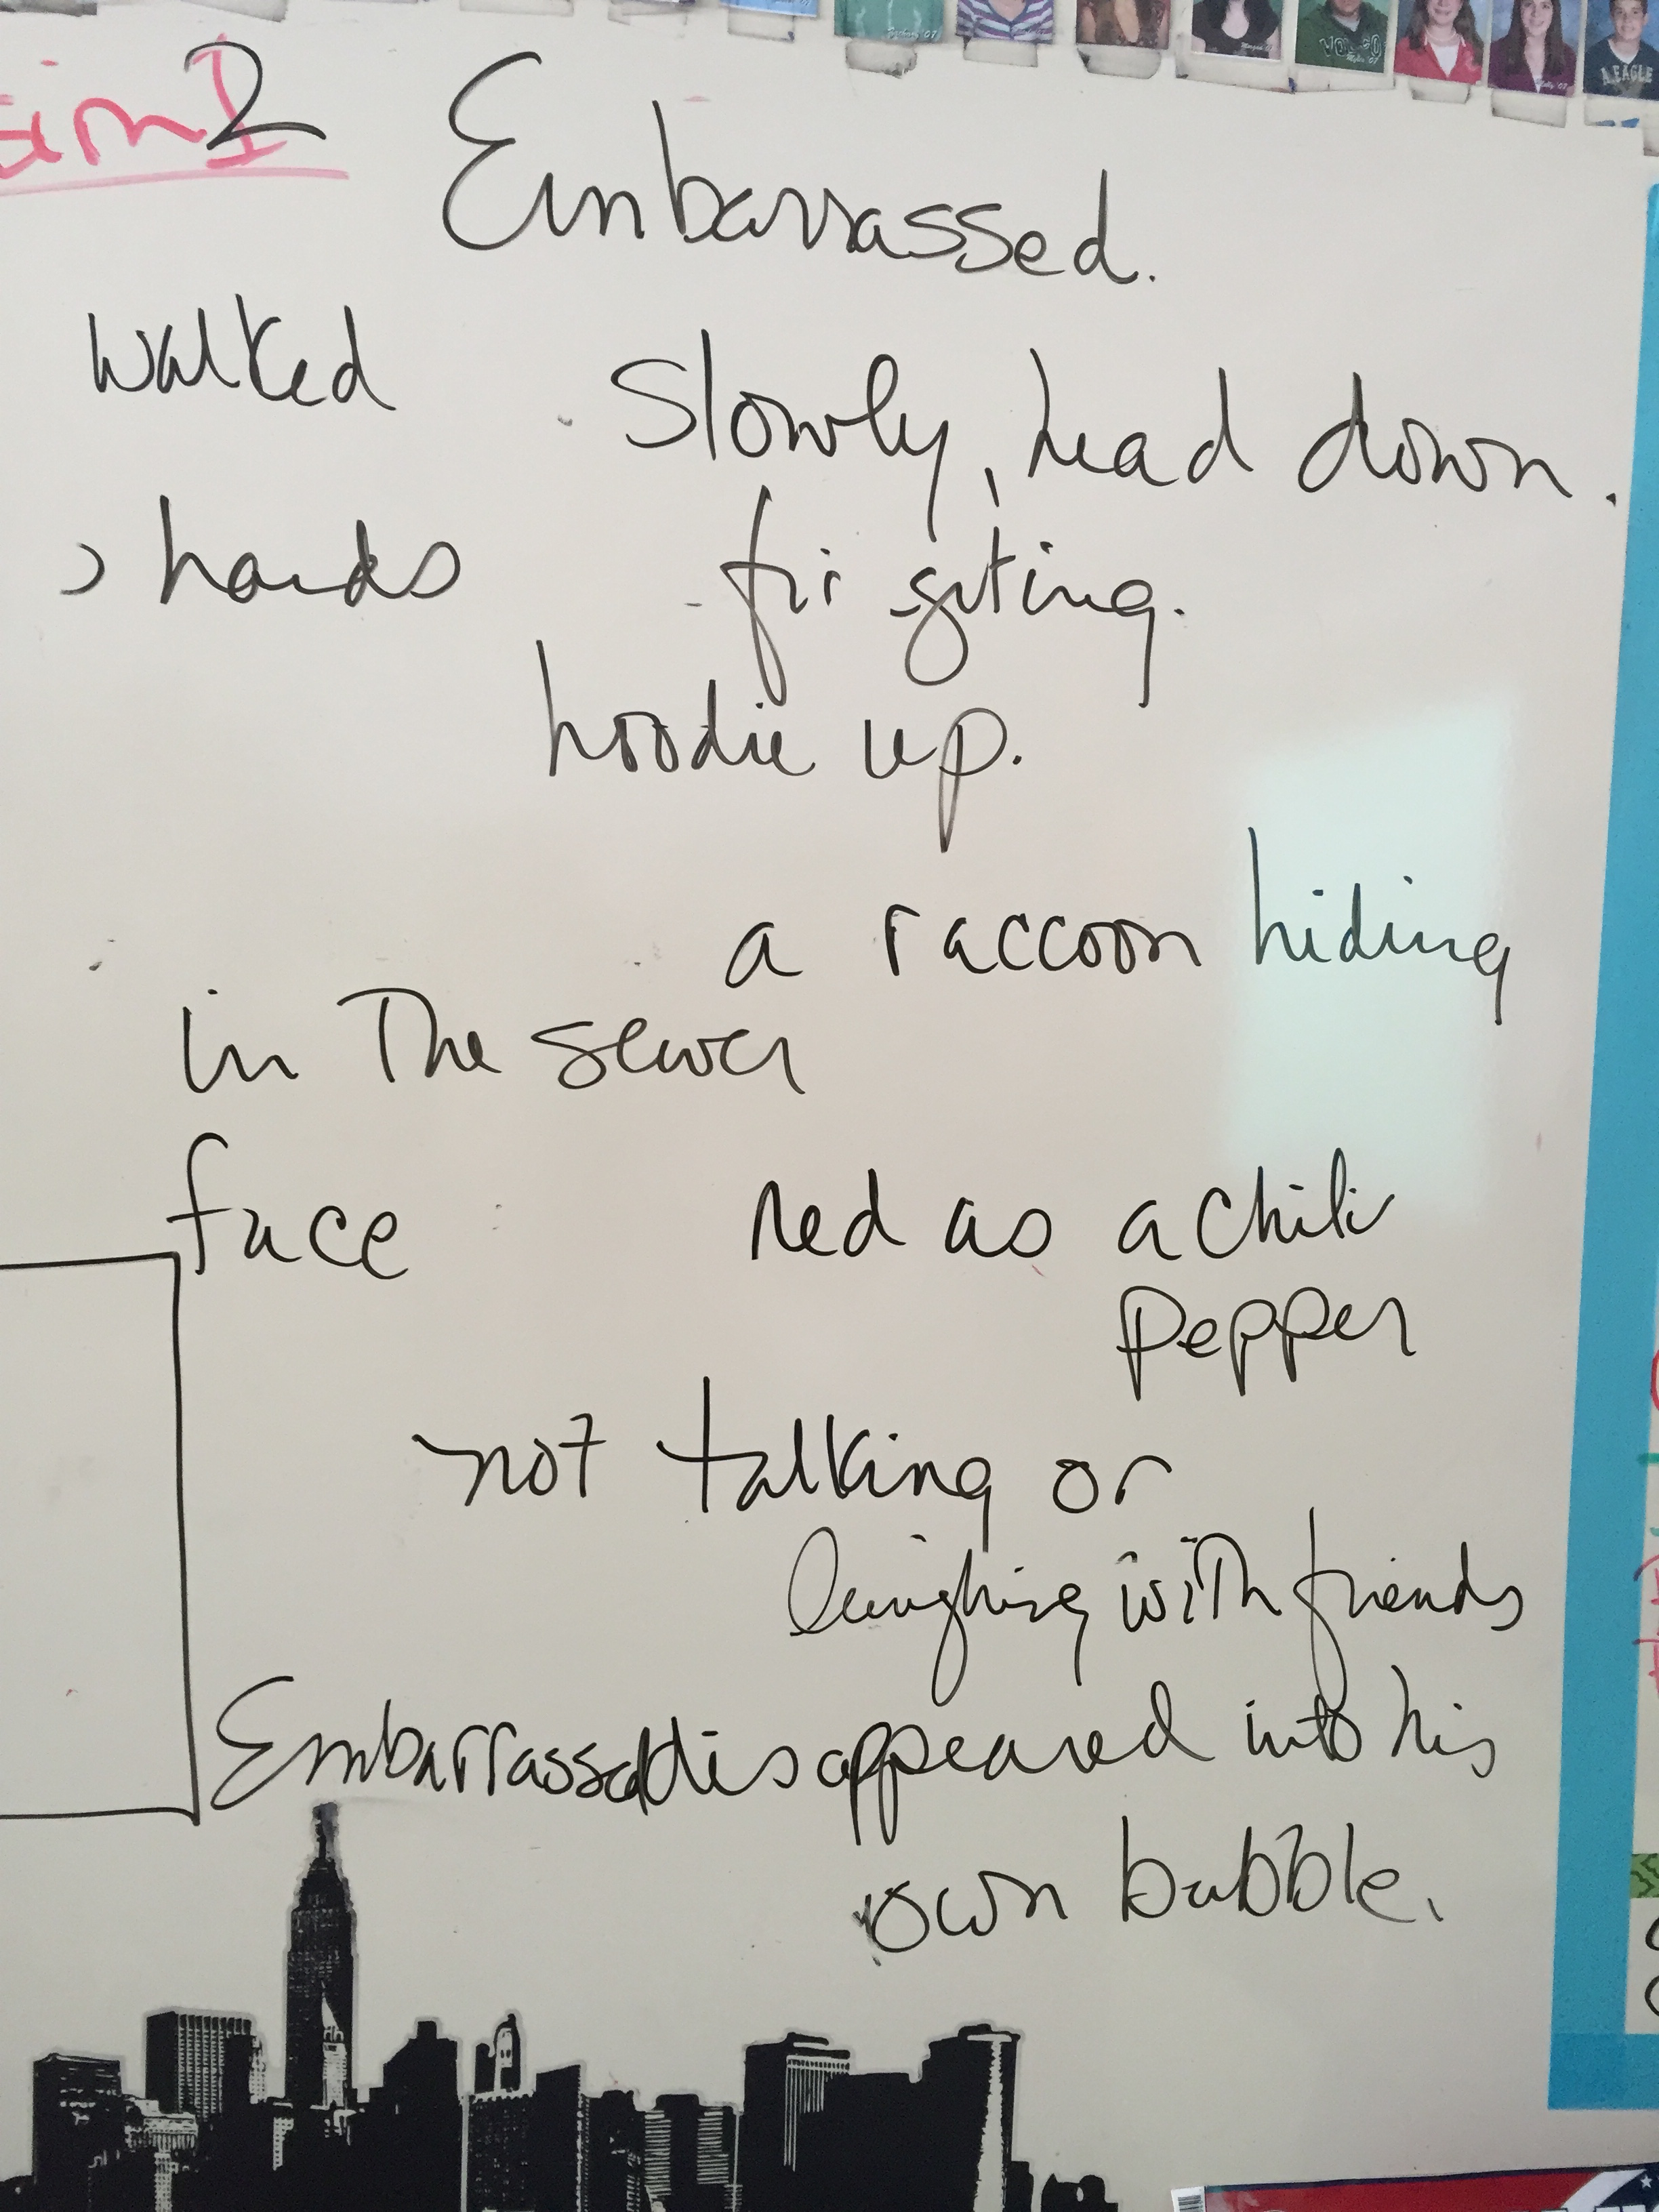 2 Embarrassed.
walked slowly, head down.
hands figiting.
hoodie up.
a raccoon hiding
in The sewer
face red as a chili
pepper
not talking or
laughing with friends
Embarrassed disappeared into his
own bubble.
VOLCO
A.EAGLE